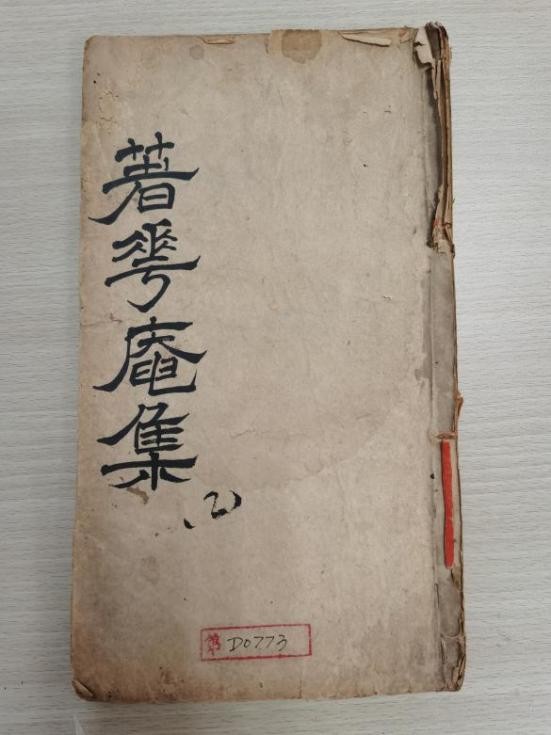 著𠌶庵集
(2)
第 D0773